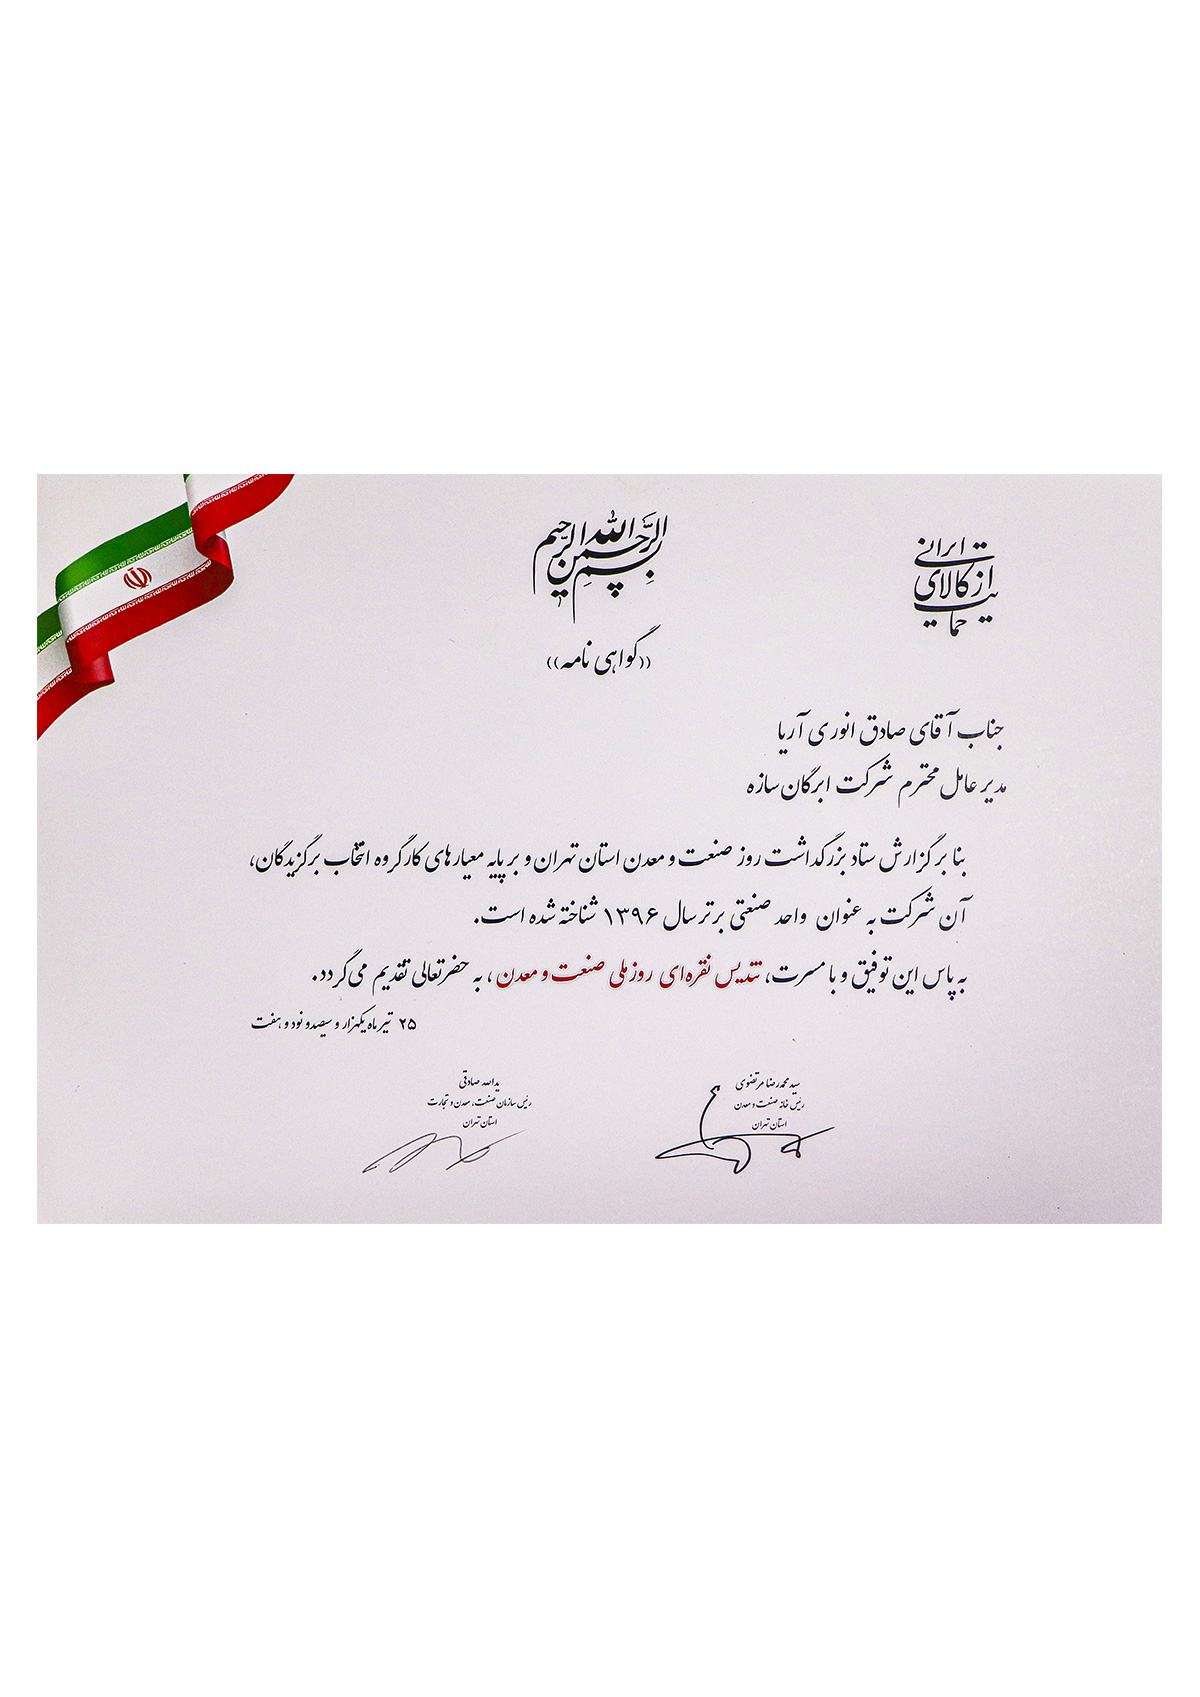 بسم الله الرحمن الرحیم
حمایت از کالای ایرانی
((گواهی نامه))
جناب آقای صادق انوری آریا
مدیر عامل محترم شرکت ابرگان سازه
بنا بر گزارش ستاد بزرگداشت روز صنعت و معدن استان تهران و بر پایه معیارهای کارگروه انتخاب برگزیدگان،
آن شرکت به عنوان واحد صنعتی برتر سال ۱۳۹۶ شناخته شده است.
به پاس این توفیق و با مسرت، تندیس نقره‌ای روز ملی صنعت و معدن ، به حضرتعالی تقدیم می‌گردد.
۲۵ تیر ماه یکهزار و سیصد و نود و هفت
سید محمدرضا مرتضوی
رئیس خانه صنعت و معدن
استان تهران
یدالله صادقی
رئیس سازمان صنعت، معدن و تجارت
استان تهران